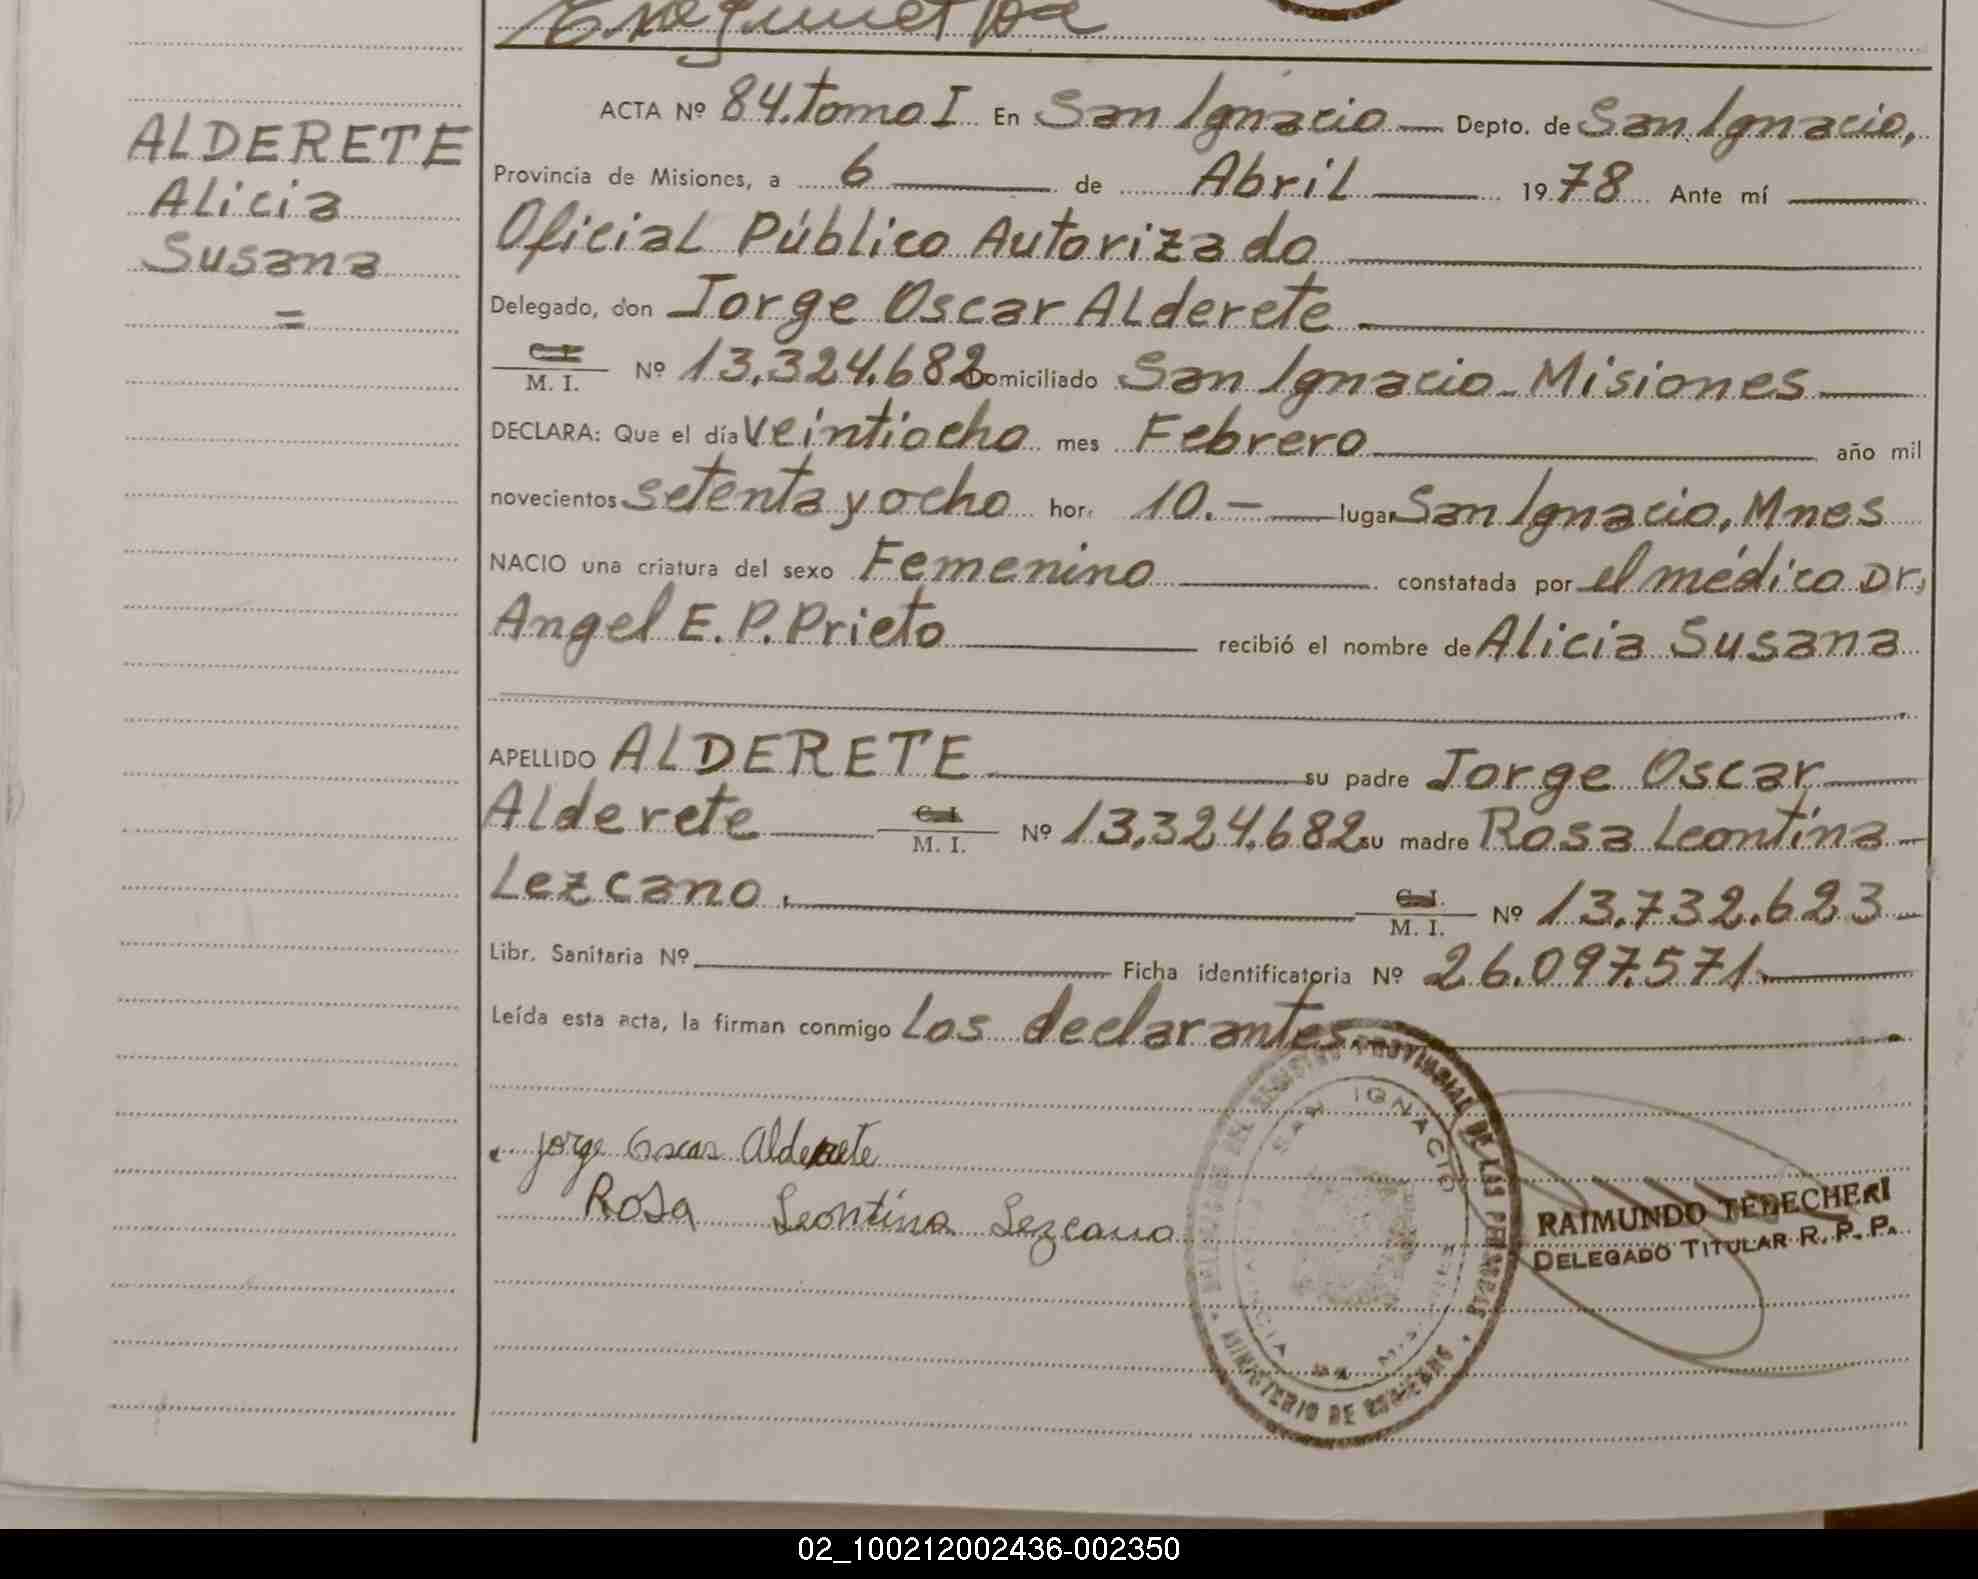 ALDERETE
Alicia
Susana
=
ACTA Nº 84. tomo I En San Ignacio Depto. de San Ignacio,
Provincia de Misiones, a 6 de Abril 1978 Ante mí
Oficial Público Autorizado
Delegado, don Jorge Oscar Alderete
C. I.
M. I. Nº 13.324.682 Domiciliado San Ignacio - Misiones
DECLARA: Que el día veintiocho mes Febrero año mil
novecientos setenta y ocho hor. 10.- lugar San Ignacio, Mnes
NACIO una criatura del sexo Femenino constatada por el médico Dr.
Angel E. P. Prieto recibió el nombre de Alicia Susana
APELLIDO ALDERETE su padre Jorge Oscar
Alderete C. I. M. I. Nº 13.324.682 su madre Rosa Leontina
Lezcano. C. I. M. I. Nº 13.732.623
Libr. Sanitaria Nº Ficha identificatoria Nº 26.097.571
Leída esta acta, la firman conmigo los declarantes
Jorge Oscar Alderete
Rosa Leontina Lezcano
PROVINCIAL DE LAS PERSONAS
SAN IGNACIO
MINISTERIO DE GOBIERNO
RAIMUNDO TEDECHERI
DELEGADO TITULAR R. P. P.
02_100212002436-002350